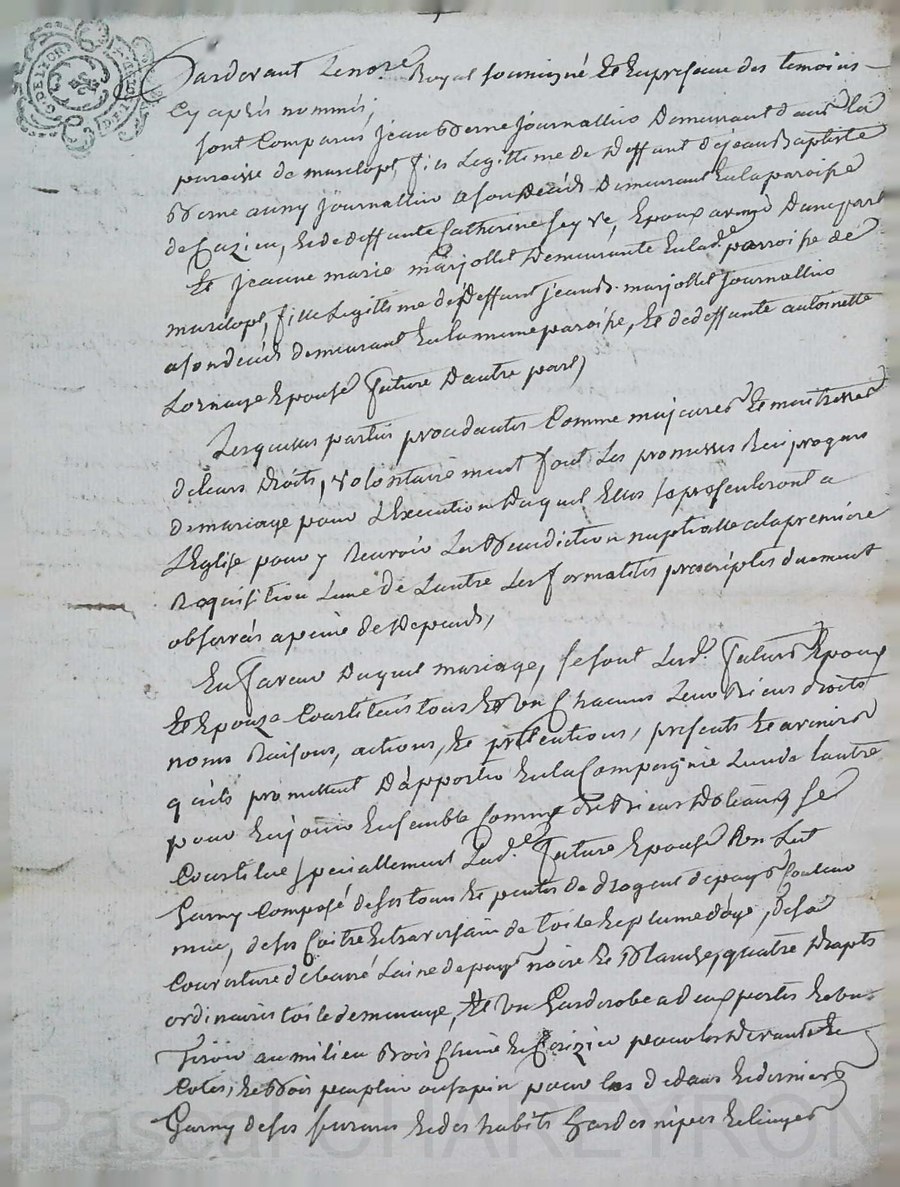 G. DE LYON
Pardevant Le nore Royal soussigné Et En presence des temoins
Cy apres nommés,
sont Comparus jean Berne journallier Demeurant dans la
paroisse de marclopt, fils Legittime de Deffunt de jean Baptiste
Berne aussy journallier a son Deceds Demeurant En la paroisse
de Cuzieu, Et de deffunte Catherine seyve, Epoux a venir D'une part
Et jeanne marie marjollet Demeurante En lad.e parroisse de
marclopt, fille Legittime de Deffunt jean marjollet journallier
a son deceds demeurant En la meme paroisse, Et de deffunte antoinette
Epouse future D'autre part,
Lesquelles parties procedantes Comme majeures Et maitresses
de leurs Droits, volontairement font Les promesses Reciproques
de mariage pour L'Execution Duquel Elles se presenteront a
L'Eglise pour y Recevoir La Benediction nuptialle a la premiere
Requisition L'une de L'autre Les formalités prescriptes duement
observées a peine de Depends,
En faveur Duquel mariage, se sont Lesd. futurs Epoux
Et Epouze Constitués tous Et un Chacuns Leurs Biens droits
noms Raisons, actions, Et prétentions, presents Et avenirs
qu'ils promettent D'apporter En la Compagnie L'un de L'autre
pour En jouir Ensemble Comme de Biens Doteaux, se
Constitue speciallement Lad.e future Epouse Un Lit
Garny Composé de ses tours Et pentes de droguet de pays Couleur
de sa Coitre Et traversain de toile Et plume d'oye, de sa
Couverture de barré Laine de pays noire Et Blanche, quatre Drapts
ordinaires toile de menage, Et un Garderobe a deux portes Et un
Tiroir au milieu Bois Chene Et Cerizier pour Les Devants Et
Cotés, Et Bois peuplier ou sapin pour les dedans Et derniers
Garny de ses ferrures Et des habits hardes nipes Et linges
Pascal CHAREYRON